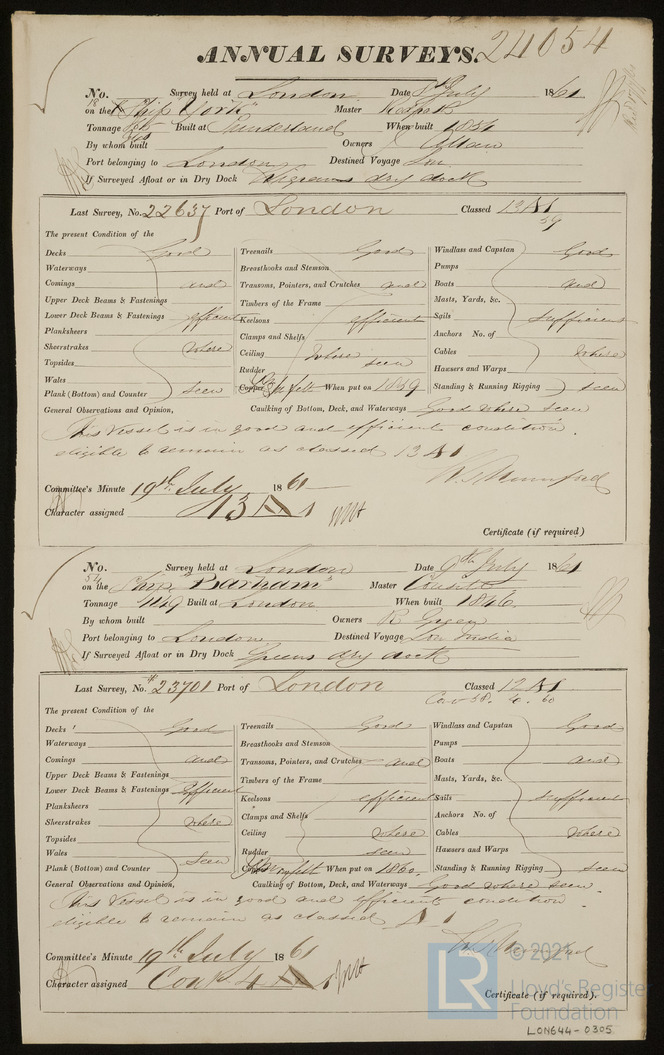 ANNUAL SURVEYS. 24054
No. Survey held at London Date July 1861
18 on the Ship "York" Master
Tonnage Built at Sunderland When built 1854
By whom built Owners J Allan
Port belonging to London Destined Voyage
If Surveyed Afloat or in Dry Dock Wigrams dry dock
Last Survey, No. 22637 Port of London Classed 13 A1
59
The present Condition of the
Decks Good Treenails Good Windlass and Capstan Good
Waterways Breasthooks and Stemson Pumps
Comings and Transoms, Pointers, and Crutches and Boats and
Upper Deck Beams & Fastenings Timbers of the Frame Masts, Yards, &c.
Lower Deck Beams & Fastenings efficient Keelsons efficient Sails sufficient
Planksheers Clamps and Shelfs Anchors No. of
Sheerstrakes where Ceiling where Cables where
Topsides Rudder seen Hawsers and Warps
Wales
Plank (Bottom) and Counter seen Copper felt When put on 1859 Standing & Running Rigging seen
General Observations and Opinion, Caulking of Bottom, Deck, and Waterways Good where seen
This Vessel is in good and efficient condition.
eligible to remain as classed 13 A1
Committee's Minute 19th July 1861
Character assigned 13 A 1
Certificate (if required)
No. Survey held at London Date 9th July 1861
on the Ship "Barham" Master Consitt
Tonnage Built at London When built 1846
By whom built Owners R Green
Port belonging to London Destined Voyage Lon India
If Surveyed Afloat or in Dry Dock Greens dry dock
Last Survey, No. 23701 Port of London Classed 12 A1
Con 58. 60
The present Condition of the
Decks Good Treenails Good Windlass and Capstan Good
Waterways Breasthooks and Stemson Pumps
Comings and Transoms, Pointers, and Crutches and Boats and
Upper Deck Beams & Fastenings Timbers of the Frame Masts, Yards, &c.
Lower Deck Beams & Fastenings efficient Keelsons efficient Sails sufficient
Planksheers Clamps and Shelfs Anchors No. of
Sheerstrakes where Ceiling where Cables where
Topsides Rudder seen Hawsers and Warps
Wales
Plank (Bottom) and Counter seen felt When put on 1860 Standing & Running Rigging seen
General Observations and Opinion, Caulking of Bottom, Deck, and Waterways Good where seen.
This Vessel is in good and efficient condition.
eligible to remain as classed A 1
Committee's Minute 19th July 1861
Character assigned Cont 4 A 1
Certificate (if required).
LR © 2021
Lloyd's Register
Foundation
LON644-0305